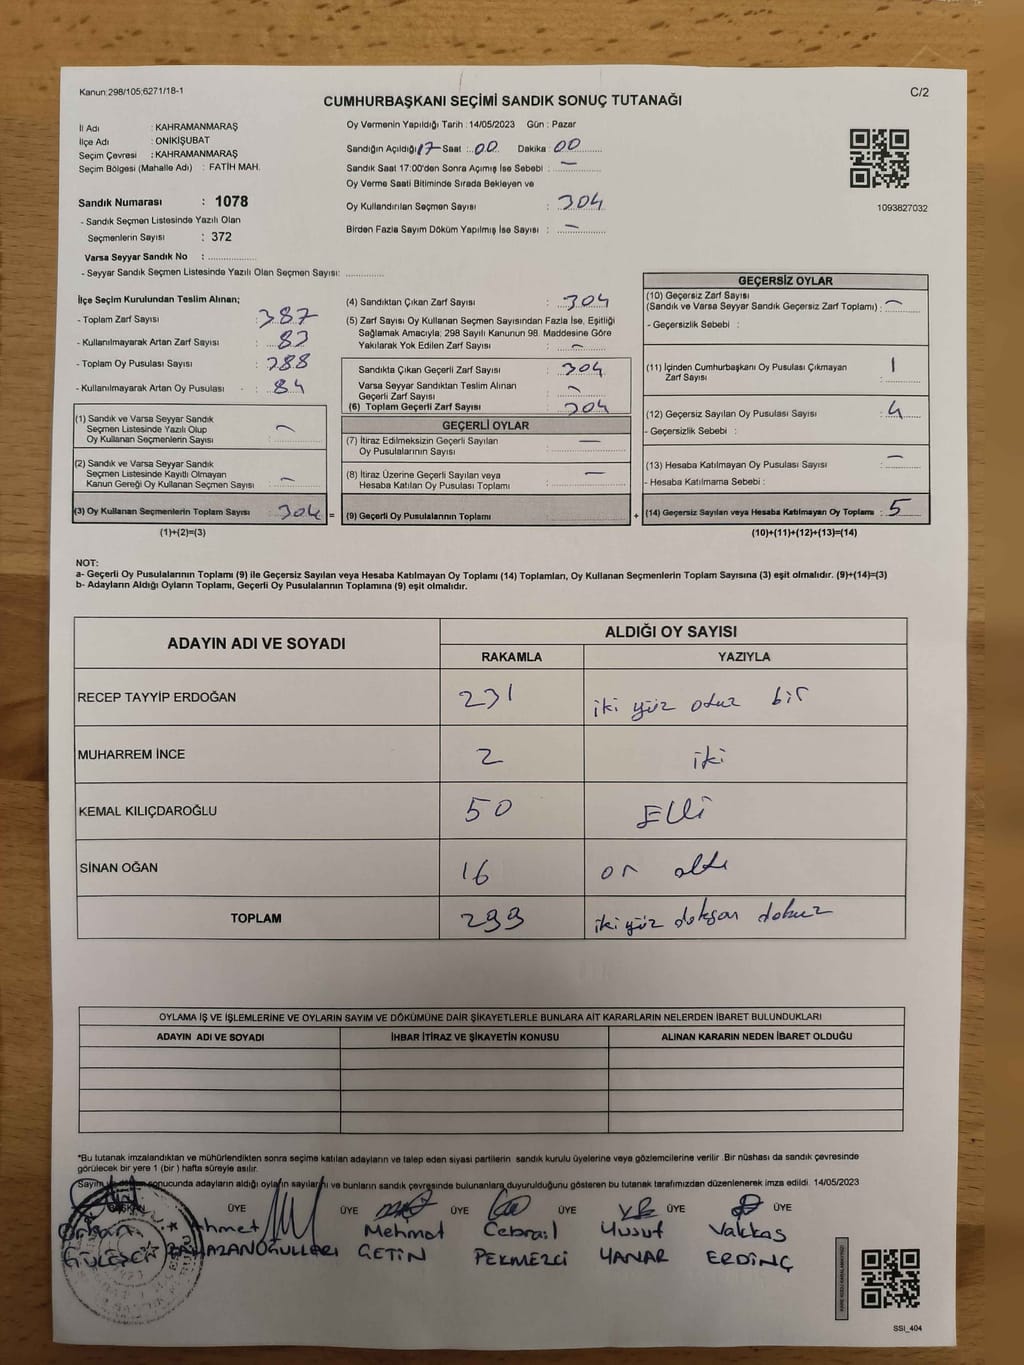 Kanun:298/105;6271/18-1
C/2
CUMHURBAŞKANI SEÇİMİ SANDIK SONUÇ TUTANAĞI
İl Adı : KAHRAMANMARAŞ
İlçe Adı : ONİKİŞUBAT
Seçim Çevresi : KAHRAMANMARAŞ
Seçim Bölgesi (Mahalle Adı) : FATİH MAH.
Sandık Numarası : 1078
- Sandık Seçmen Listesinde Yazılı Olan
Seçmenlerin Sayısı : 372
Varsa Seyyar Sandık No :
- Seyyar Sandık Seçmen Listesinde Yazılı Olan Seçmen Sayısı:
Oy Vermenin Yapıldığı Tarih : 14/05/2023 Gün : Pazar
Sandığın Açıldığı 17 Saat : 00 Dakika : 00
Sandık Saat 17:00'den Sonra Açımış İse Sebebi : —
Oy Verme Saati Bitiminde Sırada Bekleyen ve
Oy Kullandırılan Seçmen Sayısı : 304
Birden Fazla Sayım Döküm Yapılmış İse Sayısı : —
1093827032
İlçe Seçim Kurulundan Teslim Alınan;
- Toplam Zarf Sayısı : 387
- Kullanılmayarak Artan Zarf Sayısı : 83
- Toplam Oy Pusulası Sayısı : 388
- Kullanılmayarak Artan Oy Pusulası : 84
(1) Sandık ve Varsa Seyyar Sandık
Seçmen Listesinde Yazılı Olup
Oy Kullanan Seçmenlerin Sayısı : —
(2) Sandık ve Varsa Seyyar Sandık
Seçmen Listesinde Kayıtlı Olmayan
Kanun Gereği Oy Kullanan Seçmen Sayısı : —
(3) Oy Kullanan Seçmenlerin Toplam Sayısı : 304 =
(1)+(2)=(3)
(4) Sandıktan Çıkan Zarf Sayısı : 304
(5) Zarf Sayısı Oy Kullanan Seçmen Sayısından Fazla İse, Eşitliği
Sağlamak Amacıyla; 298 Sayılı Kanunun 98. Maddesine Göre
Yakılarak Yok Edilen Zarf Sayısı : —
Sandıkta Çıkan Geçerli Zarf Sayısı : 304
Varsa Seyyar Sandıktan Teslim Alınan
Geçerli Zarf Sayısı : —
(6) Toplam Geçerli Zarf Sayısı : 304
GEÇERLİ OYLAR
(7) İtiraz Edilmeksizin Geçerli Sayılan
Oy Pusulalarının Sayısı : —
(8) İtiraz Üzerine Geçerli Sayılan veya
Hesaba Katılan Oy Pusulası Toplamı : —
(9) Geçerli Oy Pusulalarının Toplamı : +
GEÇERSİZ OYLAR
(10) Geçersiz Zarf Sayısı
(Sandık ve Varsa Seyyar Sandık Geçersiz Zarf Toplamı) : —
- Geçersizlik Sebebi :
(11) İçinden Cumhurbaşkanı Oy Pusulası Çıkmayan
Zarf Sayısı : 1
(12) Geçersiz Sayılan Oy Pusulası Sayısı : 4
- Geçersizlik Sebebi :
(13) Hesaba Katılmayan Oy Pusulası Sayısı : —
- Hesaba Katılmama Sebebi :
(14) Geçersiz Sayılan veya Hesaba Katılmayan Oy Toplamı : 5
(10)+(11)+(12)+(13)=(14)
NOT:
a- Geçerli Oy Pusulalarının Toplamı (9) ile Geçersiz Sayılan veya Hesaba Katılmayan Oy Toplamı (14) Toplamları, Oy Kullanan Seçmenlerin Toplam Sayısına (3) eşit olmalıdır. (9)+(14)=(3)
b- Adayların Aldığı Oyların Toplamı, Geçerli Oy Pusulalarının Toplamına (9) eşit olmalıdır.
ADAYIN ADI VE SOYADI
ALDIĞI OY SAYISI
RAKAMLA YAZIYLA
RECEP TAYYİP ERDOĞAN 231 iki yüz otuz bir
MUHARREM İNCE 2 iki
KEMAL KILIÇDAROĞLU 50 Elli
SİNAN OĞAN 16 on altı
TOPLAM 299 iki yüz doksan dokuz
OYLAMA İŞ VE İŞLEMLERİNE VE OYLARIN SAYIM VE DÖKÜMÜNE DAİR ŞİKAYETLERLE BUNLARA AİT KARARLARIN NELERDEN İBARET BULUNDUKLARI
ADAYIN ADI VE SOYADI İHBAR İTİRAZ VE ŞİKAYETİN KONUSU ALINAN KARARIN NEDEN İBARET OLDUĞU
*Bu tutanak imzalandıktan ve mühürlendikten sonra seçime katılan adayların ve talep eden siyasi partilerin sandık kurulu üyelerine veya gözlemcilerine verilir. Bir nüshası da sandık çevresinde
görülecek bir yere 1 (bir) hafta süreyle asılır.
Sayım ve döküm sonucunda adayların aldığı oyların sayılarını ve bunların sandık çevresinde bulunanlara duyurulduğunu gösteren bu tutanak tarafımızdan düzenlenerek imza edildi. 14/05/2023
BAŞKAN ÜYE ÜYE ÜYE ÜYE ÜYE ÜYE
Ahmet Mehmet Cebrail Yusuf Vakkas
RAMAZANOĞULLARI ÇETİN PEKMEZCİ YANAR ERDİNÇ
SSI_404